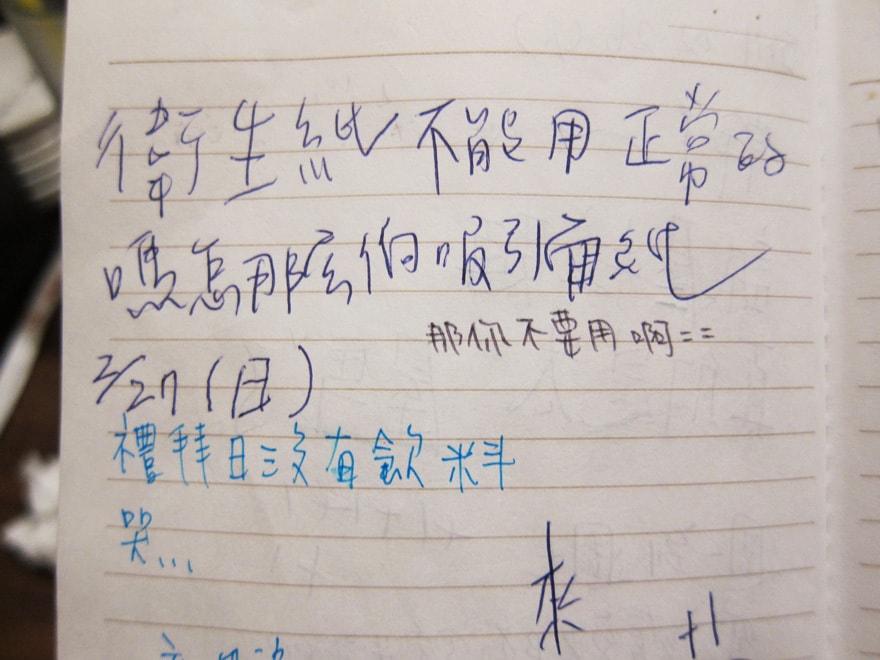 衛生紙不能用正常的
嗎怎那麼像吸引面紙
那你不要用啊==
2/27(日)
禮拜日沒有飲料
哭...
來